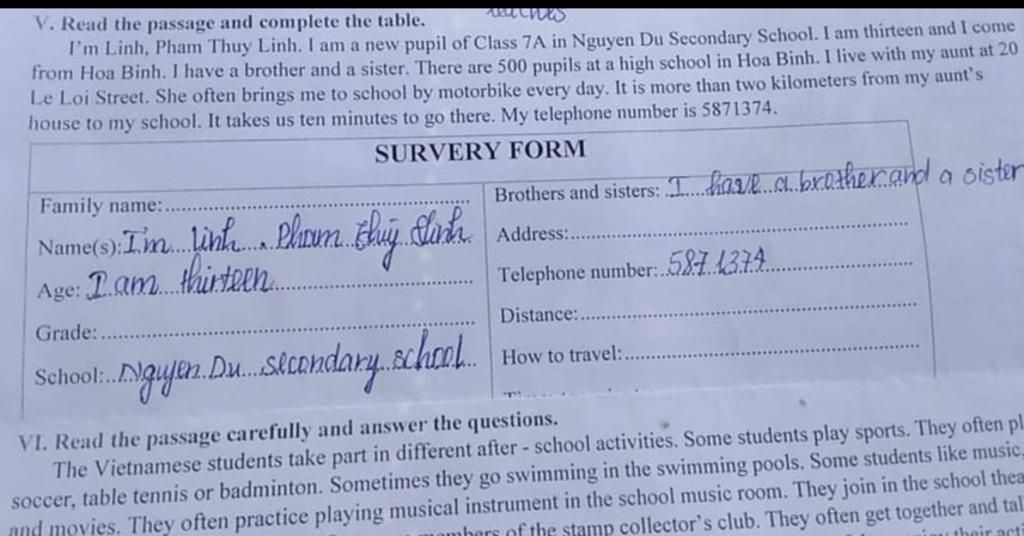 V. Read the passage and complete the table.
I'm Linh, Pham Thuy Linh. I am a new pupil of Class 7A in Nguyen Du Secondary School. I am thirteen and I come
from Hoa Binh. I have a brother and a sister. There are 500 pupils at a high school in Hoa Binh. I live with my aunt at 20
Le Loi Street. She often brings me to school by motorbike every day. It is more than two kilometers from my aunt's
house to my school. It takes us ten minutes to go there. My telephone number is 5871374.
SURVERY FORM
Family name:
Name(s): I'm linh. Pham thuỳ linh
Age: I am thirteen
Grade:
School: Nguyen Du secondary school
Brothers and sisters: I have a brother and a sister
Address:
Telephone number: 5871374
Distance:
How to travel:
VI. Read the passage carefully and answer the questions.
The Vietnamese students take part in different after - school activities. Some students play sports. They often pl
soccer, table tennis or badminton. Sometimes they go swimming in the swimming pools. Some students like music,
and movies. They often practice playing musical instrument in the school music room. They join in the school thea
of the stamp collector's club. They often get together and tal